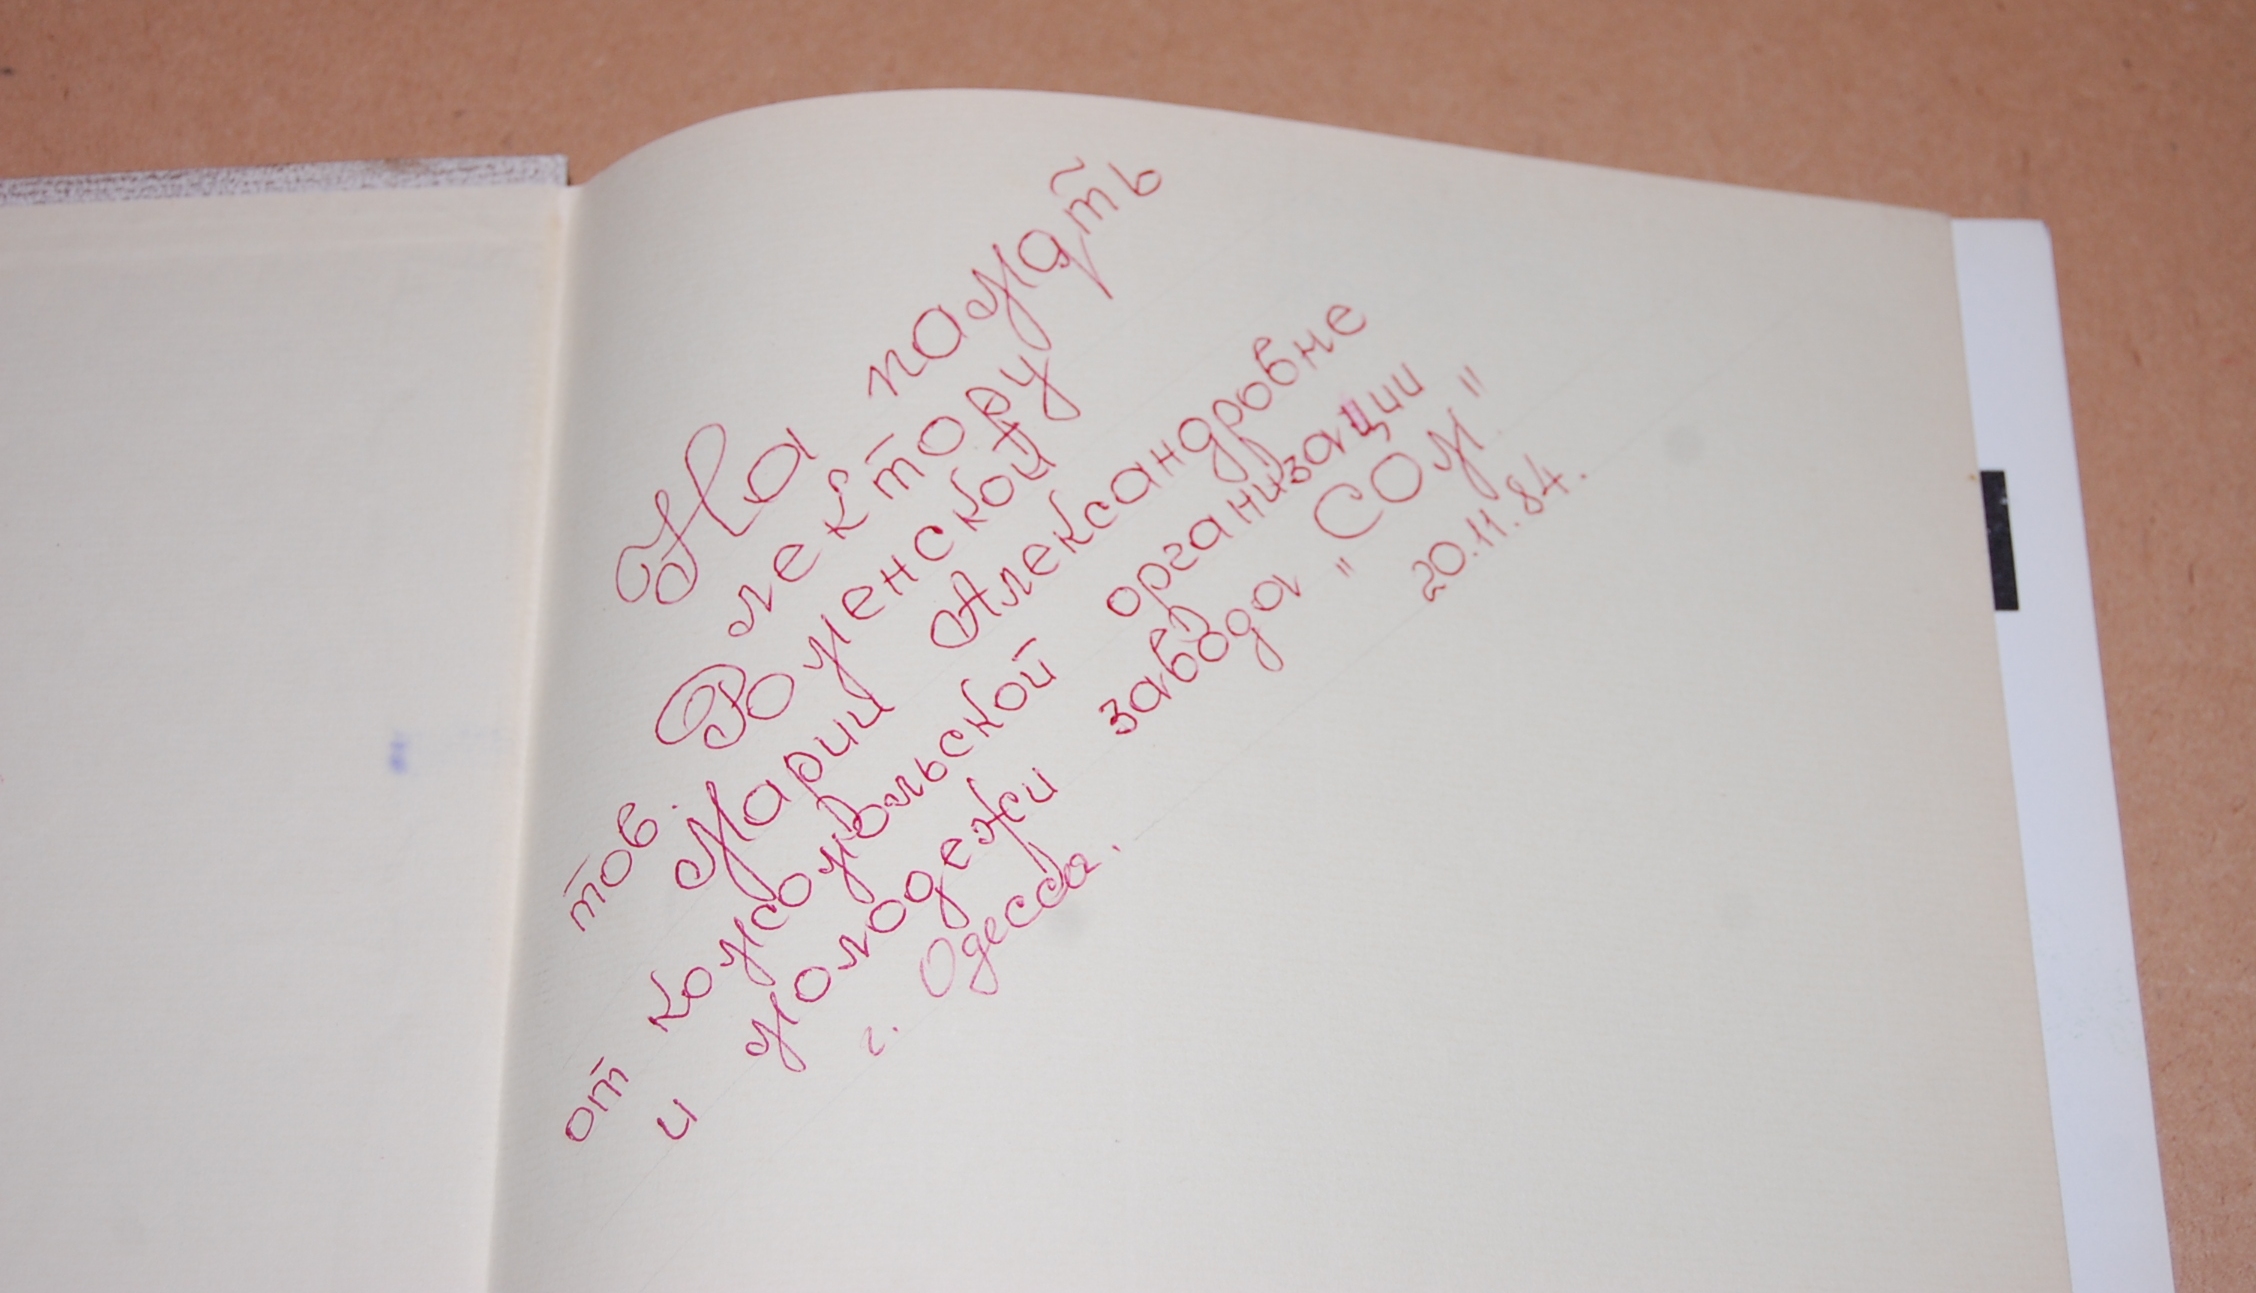 На память
лектору
тов. Роменской
Марии Александровне
от комсомольской организации
и молодежи завода „СОМ"
г. Одесса. 20.11.84.